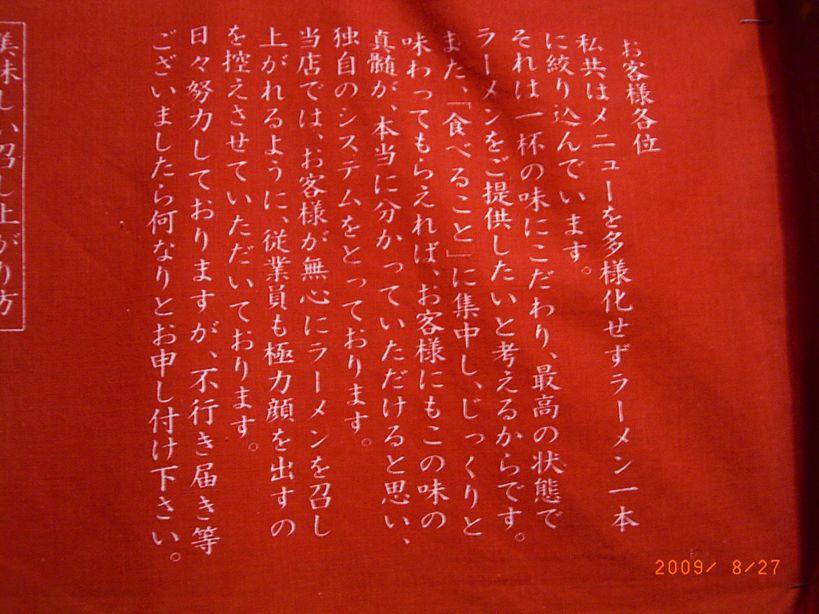 お客様各位
私共はメニューを多様化せずラーメン一本
に絞り込んでいます。
それは一杯の味にこだわり、最高の状態で
ラーメンをご提供したいと考えるからです。
また、「食べること」に集中し、じっくりと
味わってもらえれば、お客様にもこの味の
真髄が、本当に分かっていただけると思い、
独自のシステムをとっております。
当店では、お客様が無心にラーメンを召し
上がれるように、従業員も極力顔を出すの
を控えさせていただいております。
日々努力しておりますが、不行き届き等
ございましたら何なりとお申し付け下さい。
美味しい召し上がり方
2009/ 8/27